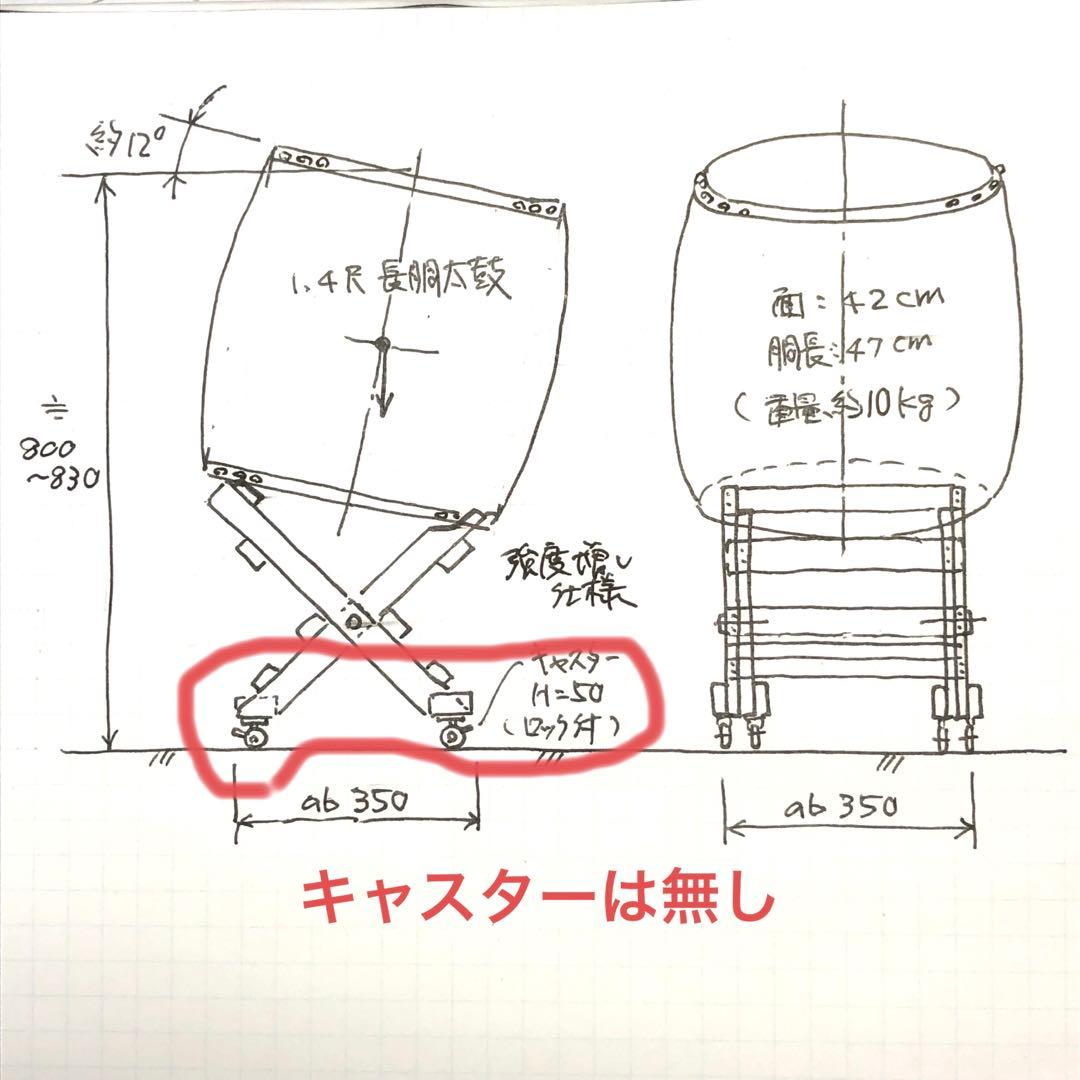 約12°
1.4尺 長胴太鼓
≒
800
~830
面:42cm
胴長:47cm
(重量約10kg)
強度増し
仕様
キャスター
H=50
(ロック付)
ab 350
ab 350
キャスターは無し